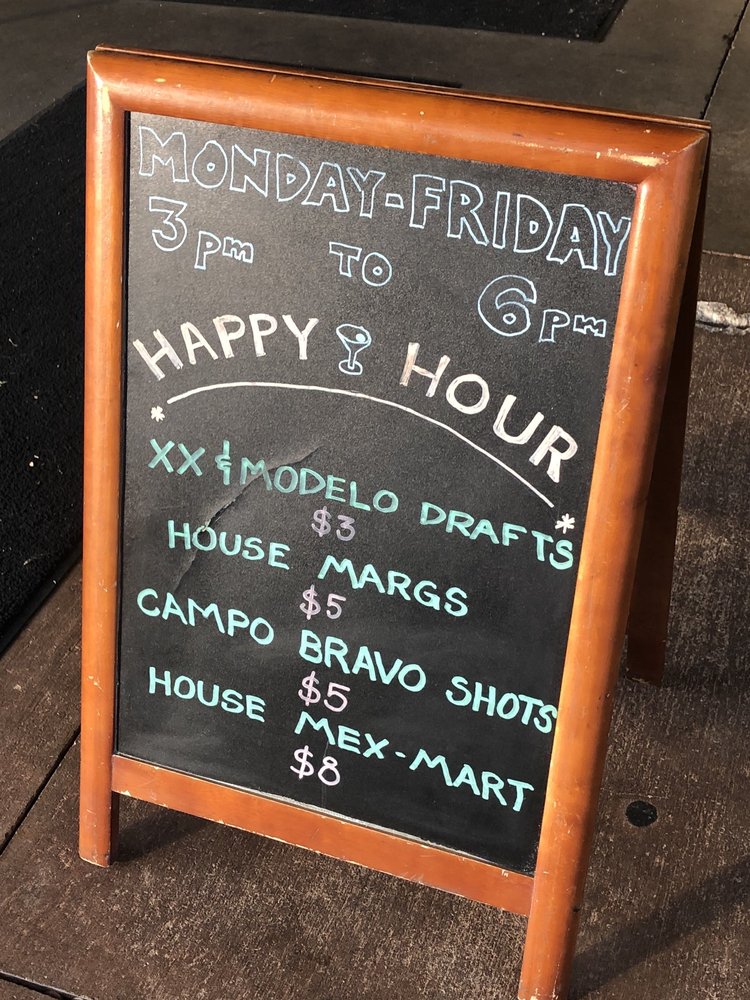 MONDAY-FRIDAY
3pm TO 6pm
HAPPY HOUR
XX & MODELO DRAFTS
$3
HOUSE MARGS
$5
CAMPO BRAVO SHOTS
$5
HOUSE MEX-MART
$8